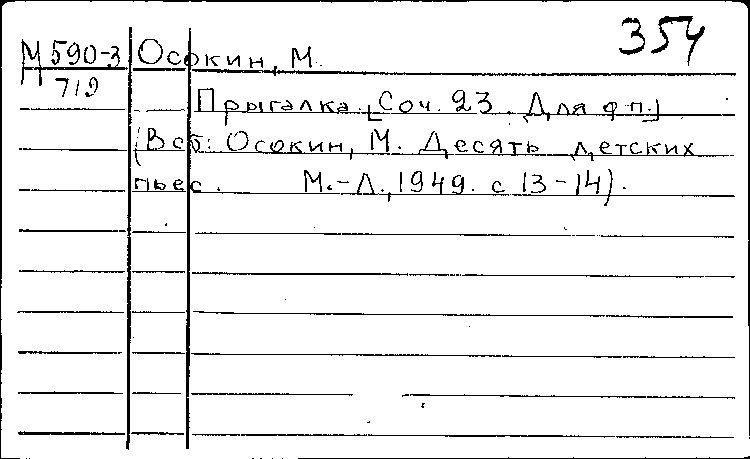 354
М 590-3 Осокин, М.
7/9
Прыгалка. [Соч. 23. Для ф-п.]
(В сб: Осокин, М. Десять детских
пьес. М.-Л., 1949. с 13-14).